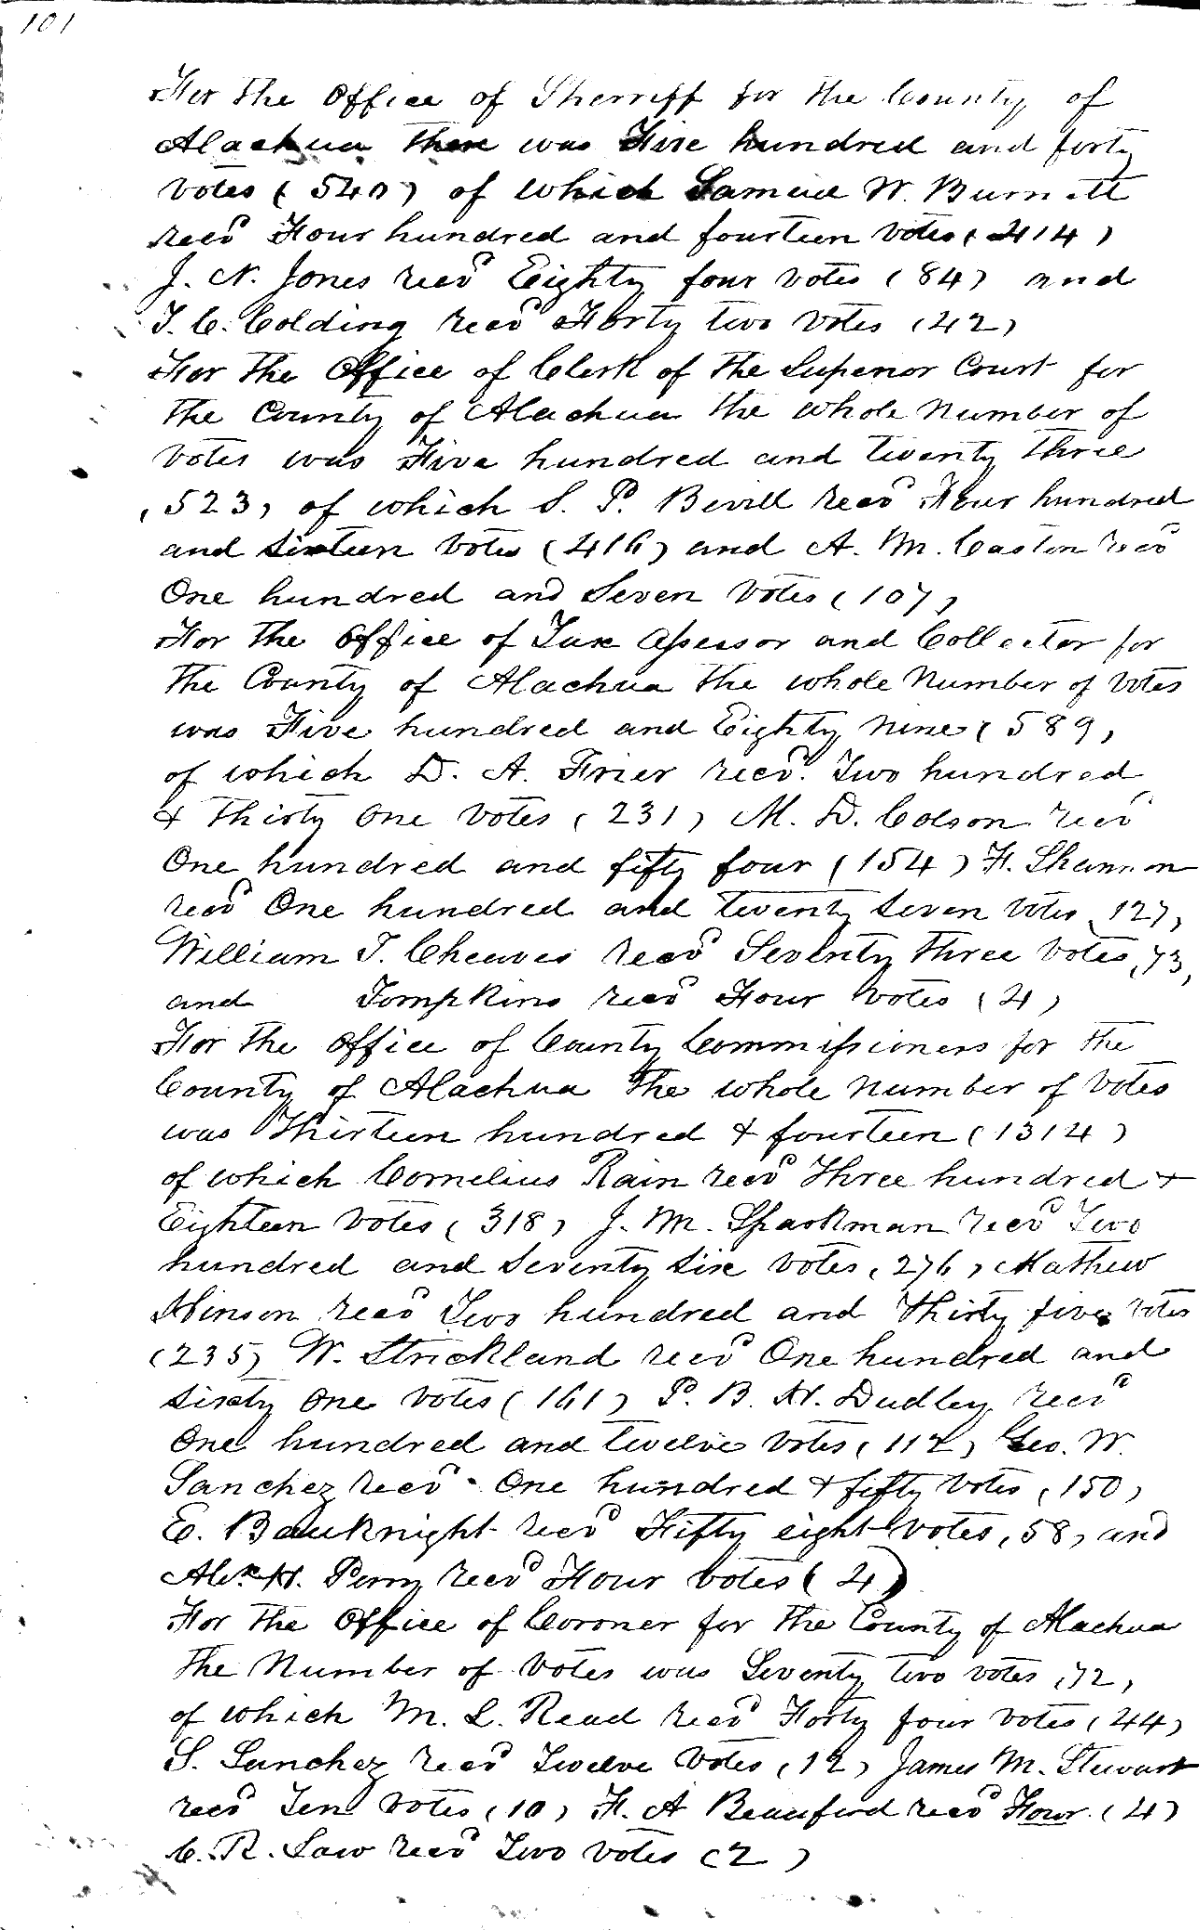 101
For the Office of Sherriff for the County of
Alachua there was Five hundred and forty
votes (540) of which Samuel W. Burnett
recd Four hundred and fourteen votes (414)
J. N. Jones recd Eighty four votes (84) and
T. C. Colding recd Forty two votes (42)
For the Office of Clerk of the Superior Court for
the County of Alachua the whole number of
votes was Five hundred and twenty three
(523) of which S. P. Bevill recd Four hundred
and sixteen votes (416) and A. M. Caston recd
One hundred and Seven votes (107)
For the Office of Tax Assessor and Collector for
the County of Alachua the whole number of votes
was Five hundred and Eighty nine (589)
of which D. A. Frier recd. Two hundred
& thirty one votes (231) M. D. Colson recd
One hundred and fifty four (154) F. Shannon
recd One hundred and twenty seven votes (127)
William T. Cheaves recd Seventy three votes (73)
and Tompkins recd Four votes (4)
For the office of County Commissioners for the
County of Alachua the whole number of votes
was Thirteen hundred & fourteen (1314)
of which Cornelius Rain recd Three hundred &
Eighteen votes (318) J. M. Sparkman recd Two
hundred and seventy six votes (276) Mathew
Hinson recd Two hundred and Thirty five votes
(235) W. Strickland recd One hundred and
sixty one votes (161) P. B. H. Dudley recd
One hundred and twelve votes (112) Geo. W.
Sanchez recd One hundred & fifty votes (150)
E. Bauknight recd Fifty eight votes (58) and
Alex. H. Perry recd Four votes (4)
For the Office of Coroner for the County of Alachua
the Number of votes was Seventy two votes (72)
of which M. L. Read recd Forty four votes (44)
S. Sanchez recd Twelve votes (12) James M. Stewart
recd Ten votes (10) F. A Beauford recd Four (4)
C. R. Law recd Two votes (2)